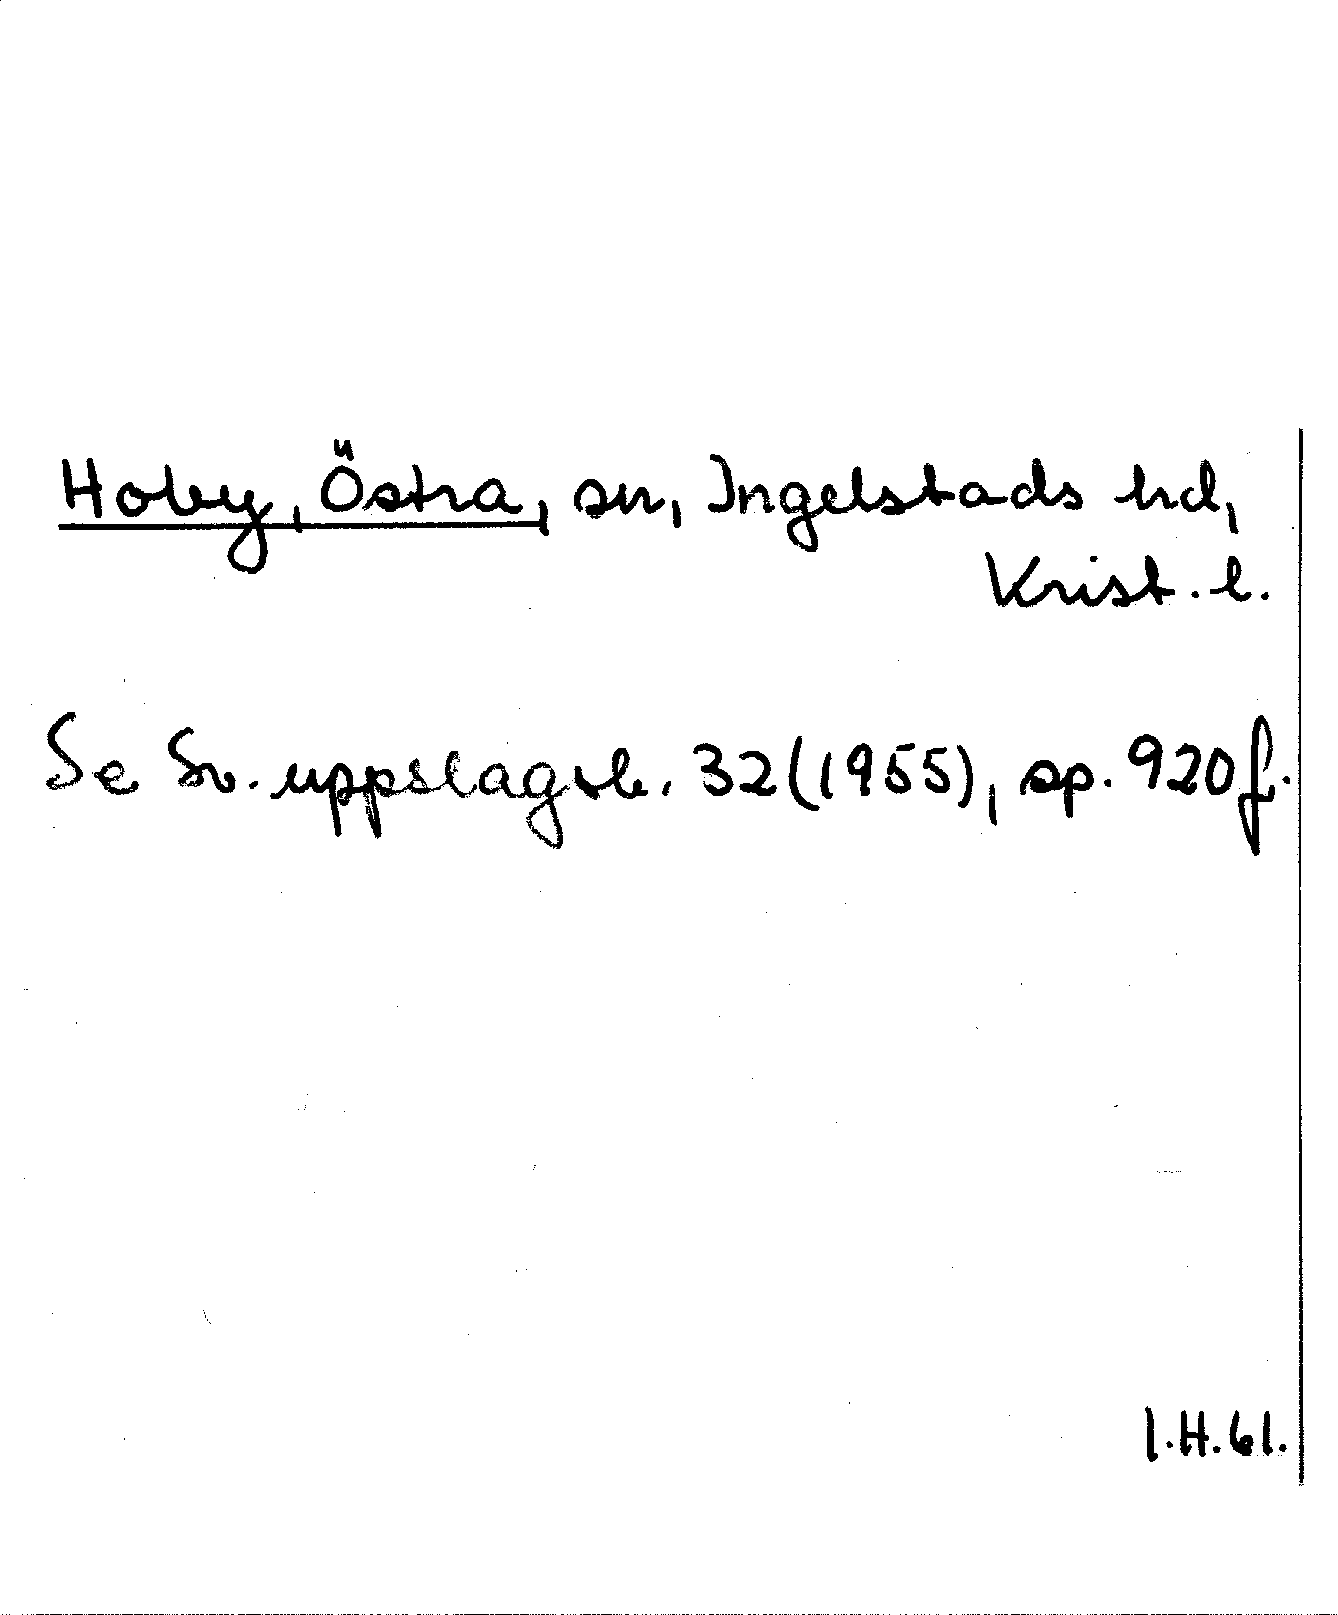 Hoby, Östra, sn, Ingelstads hd,
Krist. l.
Se Sv. uppslagsb. 32 (1955), sp. 920 f.
I.H. 61.